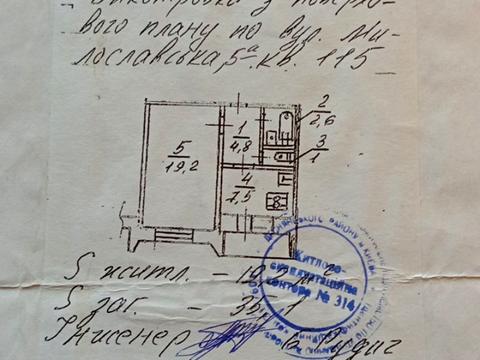 Викопіровка з поверхо-
вого плану по вул. Ми-
лославська, 5а кв. 115
2
2,6
1
4,8
3
1
5
19,2
4
7,5
В
S житл. – 19,2 м²
S заг. – 35,1
Інженер
Житлово-
експлуатаційна
контора № 314